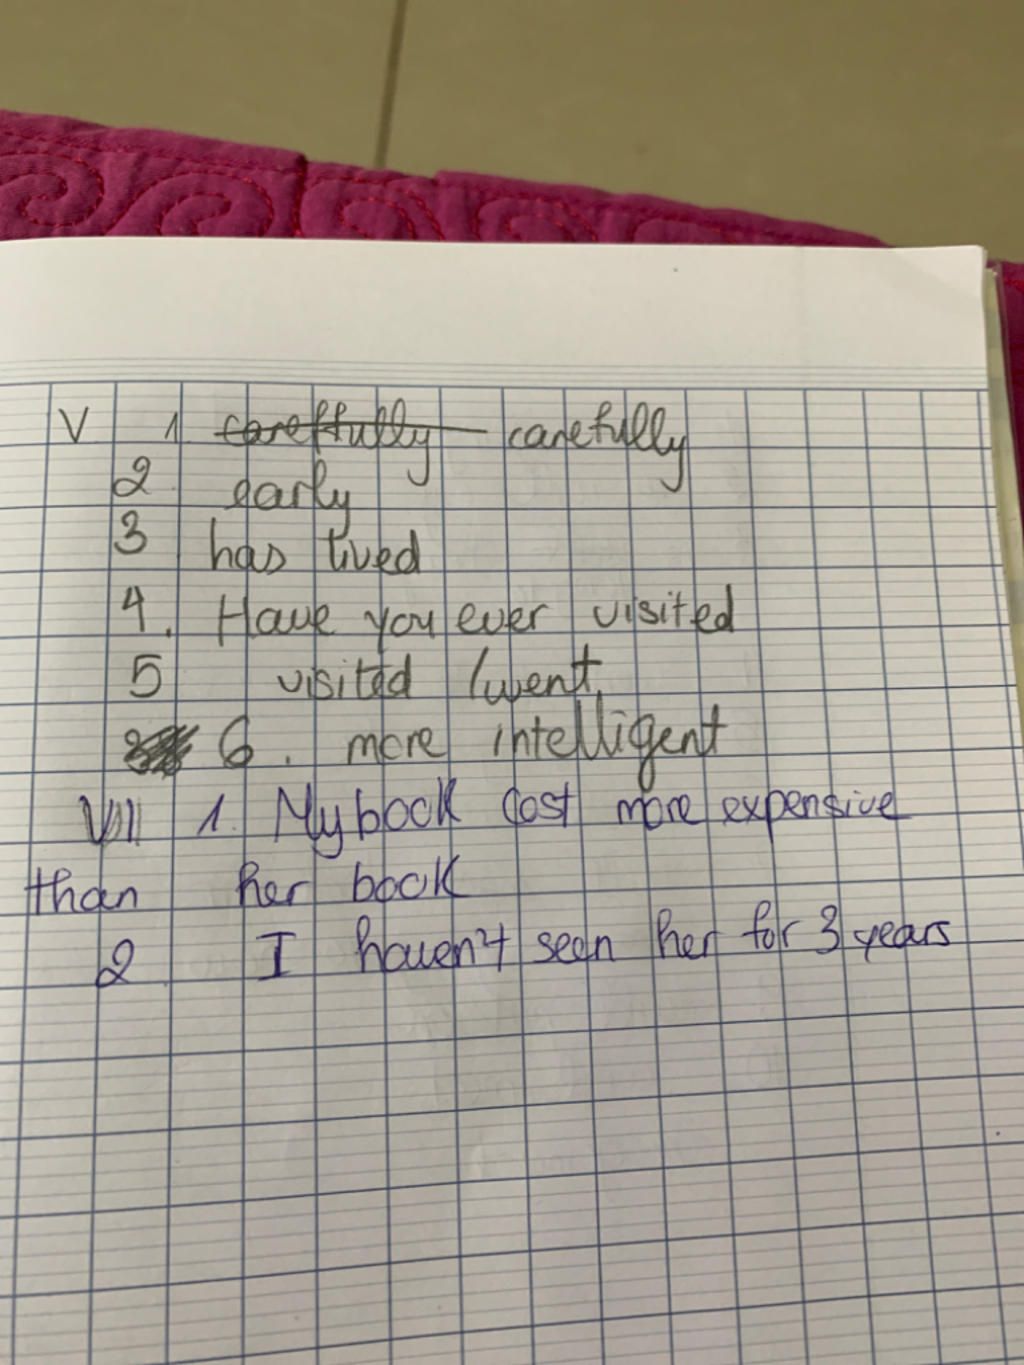 V 1 carefftully carefully
2 early
3 has lived
4. Have you ever visited
5 visited / went.
6. more intelligent
VIII 1. My book cost more expensive
than her book
2 I haven't seen her for 3 years